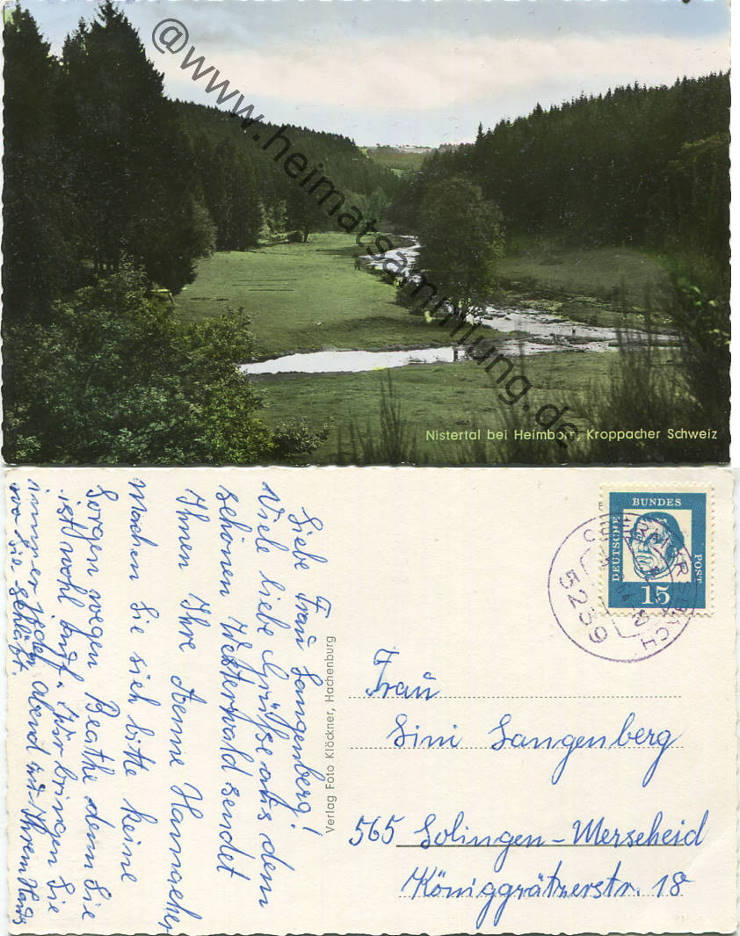 @www.heimatsammlung.de
Nistertal bei Heimborn, Kroppacher Schweiz
Liebe Frau Langenberg!
Viele liebe Grüße aus dem
schönen Westerwald sendet
Ihnen Ihre Aenne
Machen Sie sich bitte keine
Sorgen wegen Beathe denn Sie
ist wohl auf. Wir bringen Sie
immer jeden abend zu Ihrem Haus
wo Sie schläft.
Verlag Foto Klöckner, Hachenburg
DEUTSCHE BUNDES POST
15
5239
Frau
Sini Langenberg
565 Solingen-Merscheid
Königgrätzerstr. 18